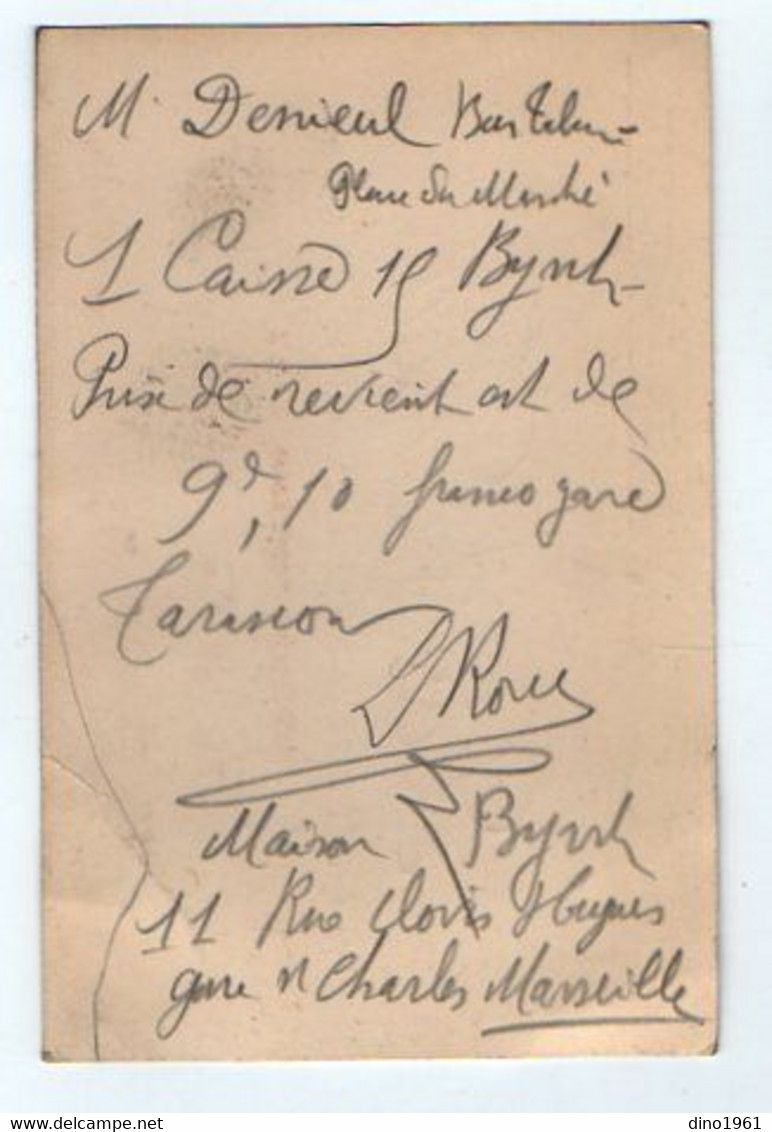 M. Denieul
Place du Marché
1 Caisse 15 Byrrh
Prix de revient est de
9d,10 franco gare
Tarascon
Maison Byrrh
11 Rue Clovis Hugues
gare St Charles Marseille
dino1961